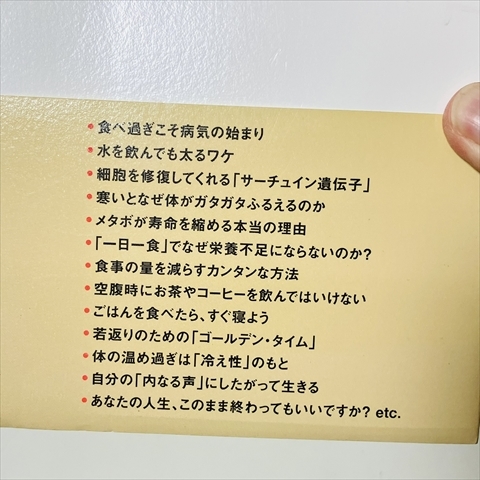 • 食べ過ぎこそ病気の始まり
• 水を飲んでも太るワケ
• 細胞を修復してくれる「サーチュイン遺伝子」
• 寒いとなぜ体がガタガタふるえるのか
• メタボが寿命を縮める本当の理由
• 「一日一食」でなぜ栄養不足にならないのか?
• 食事の量を減らすカンタンな方法
• 空腹時にお茶やコーヒーを飲んではいけない
• ごはんを食べたら、すぐ寝よう
• 若返りのための「ゴールデン・タイム」
• 体の温め過ぎは「冷え性」のもと
• 自分の「内なる声」にしたがって生きる
• あなたの人生、このまま終わってもいいですか? etc.